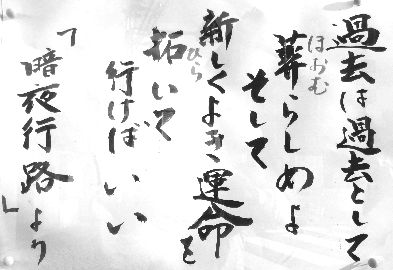 過去は過去として
葬らしめよ
ほおむ
そして
新しくよき運命を
拓いて
ひら
行けばいい
「暗夜行路」より